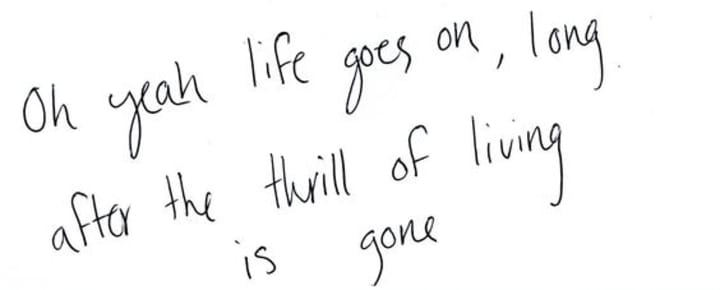 Oh yeah life goes on, long
after the thrill of living
is gone